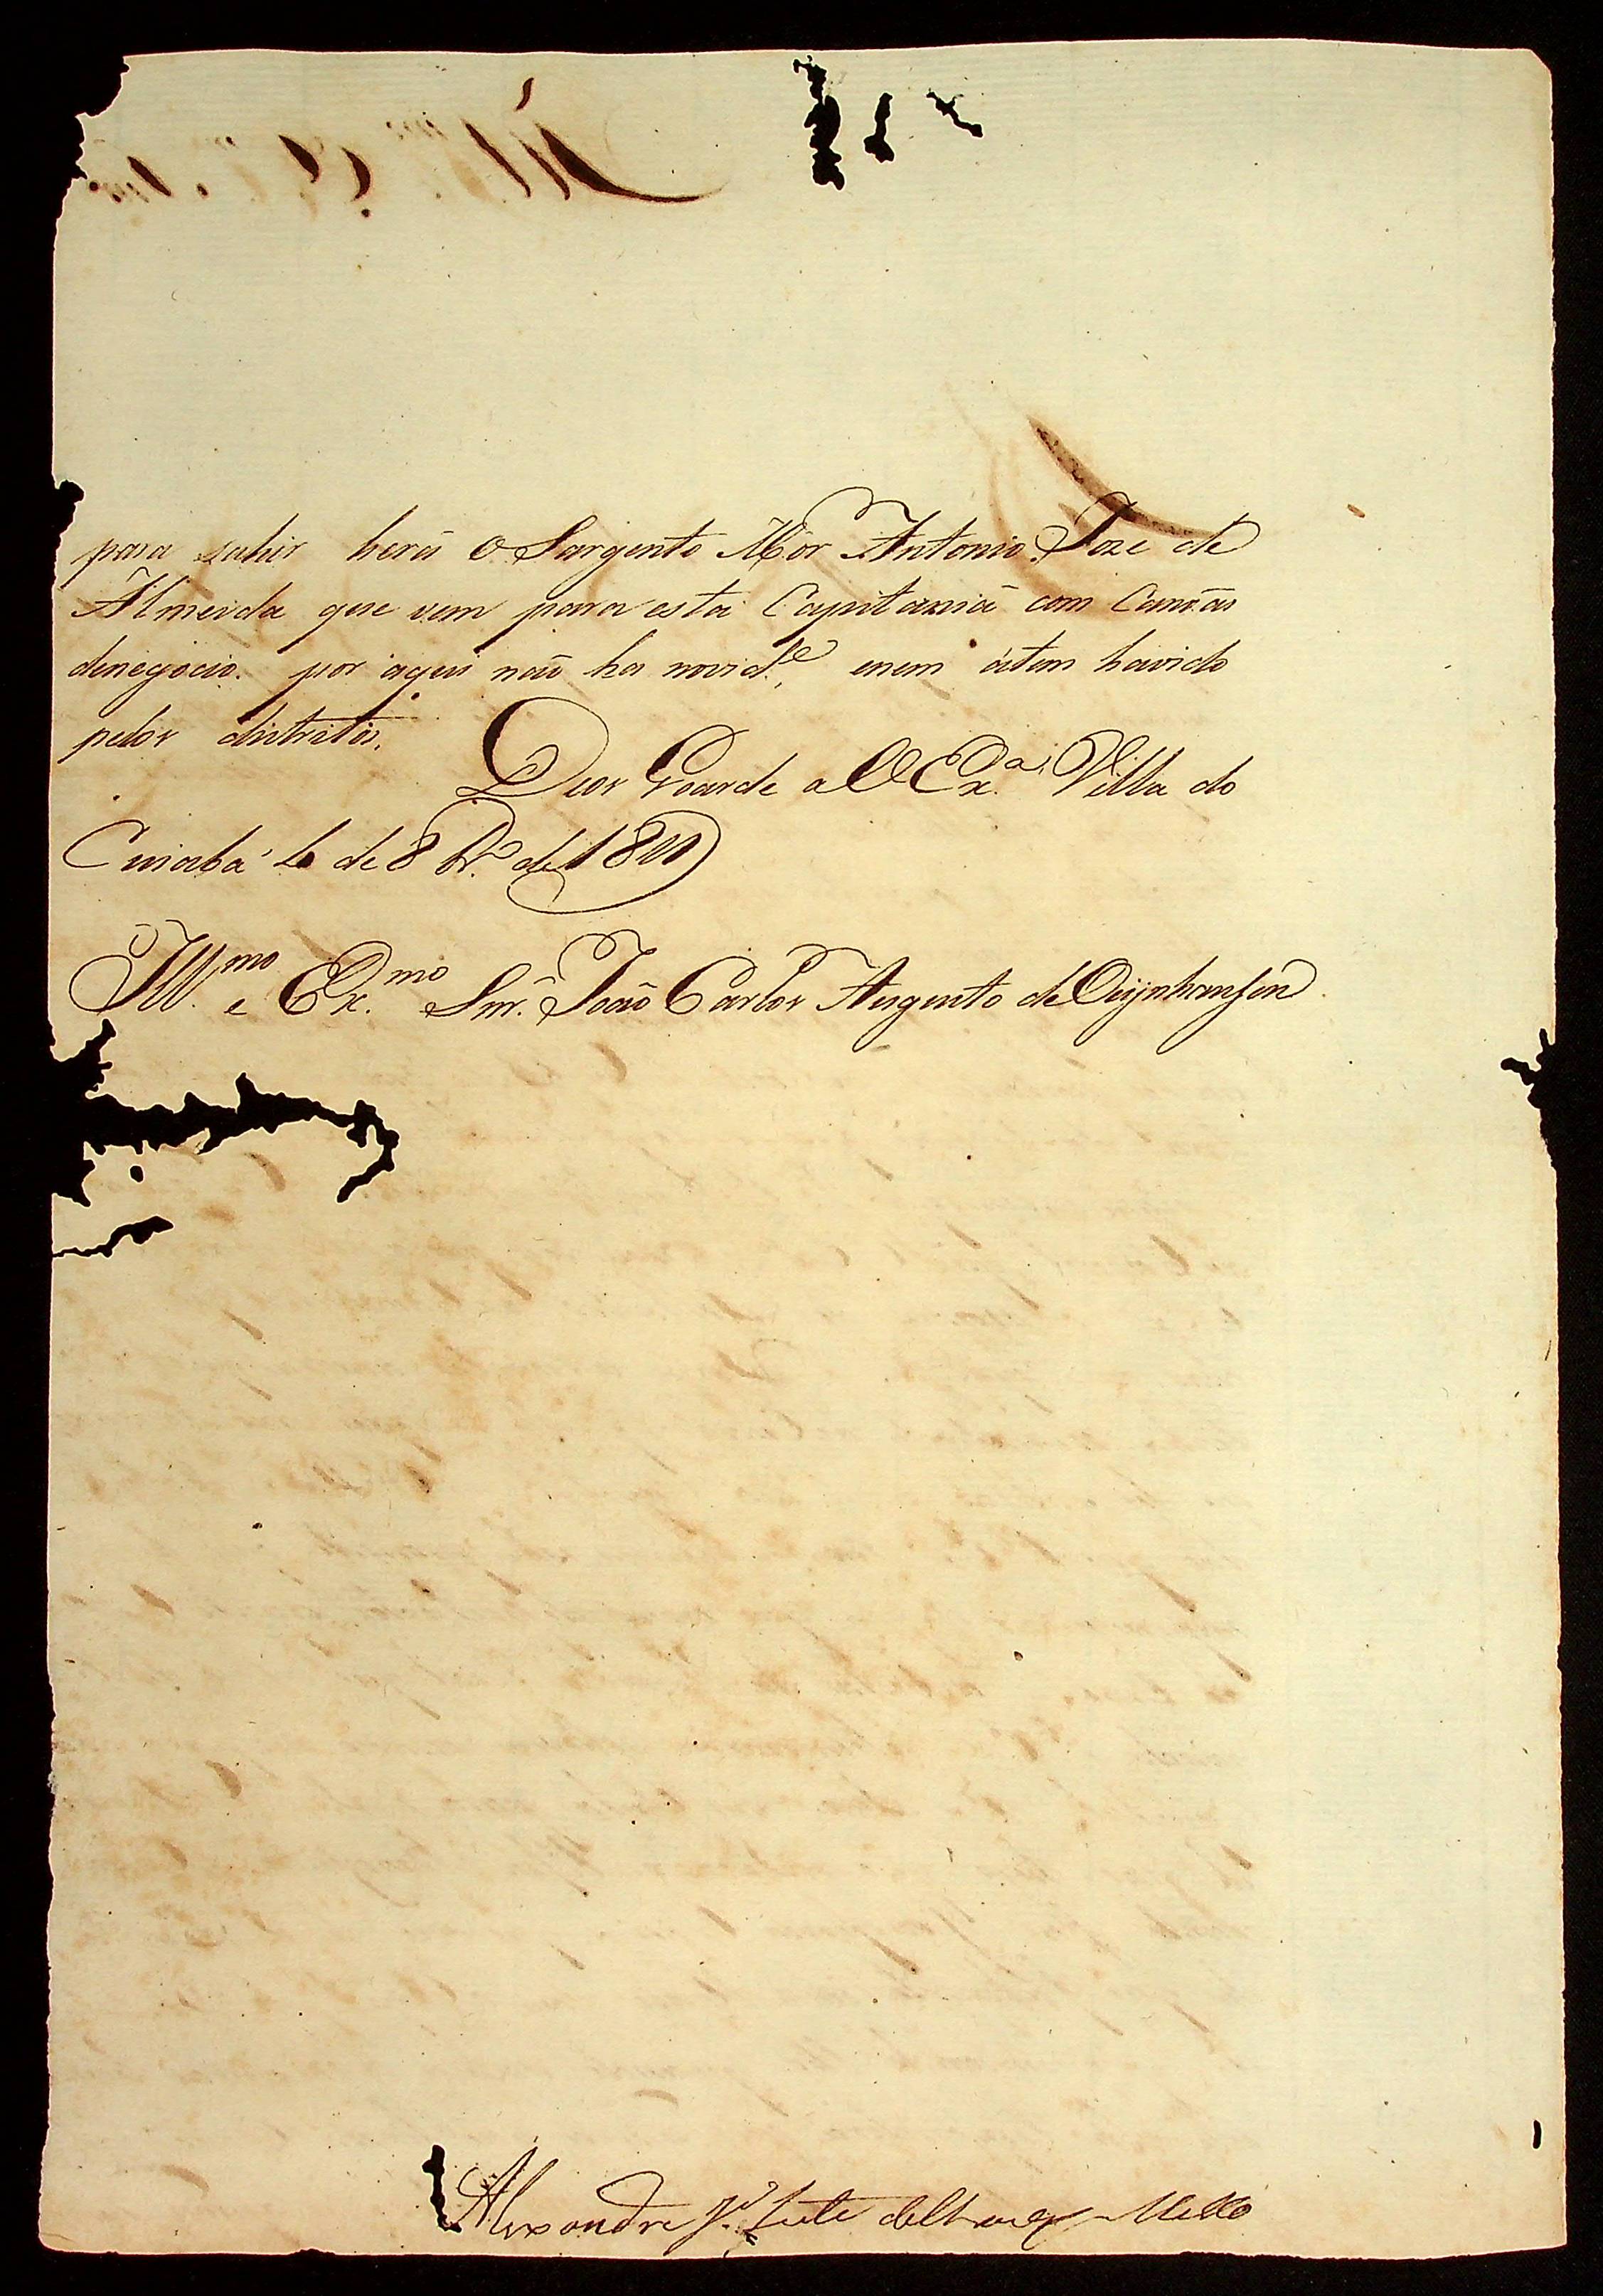 para sahir herá o Sargento Mór Antonio Joze de
Almeida que vem para esta Capitania com
denegocio. por aqui naõ ha novid.e, enem átem havido
pelos distritos.
Deos Guarde a V Ex.a Villa do
Cuiabá de 8br.o de
Ill.mo e Ex.mo Snr. Joaõ Carlos Augusto de Oeijnhausen
Alexandre J.e Leite de Mello